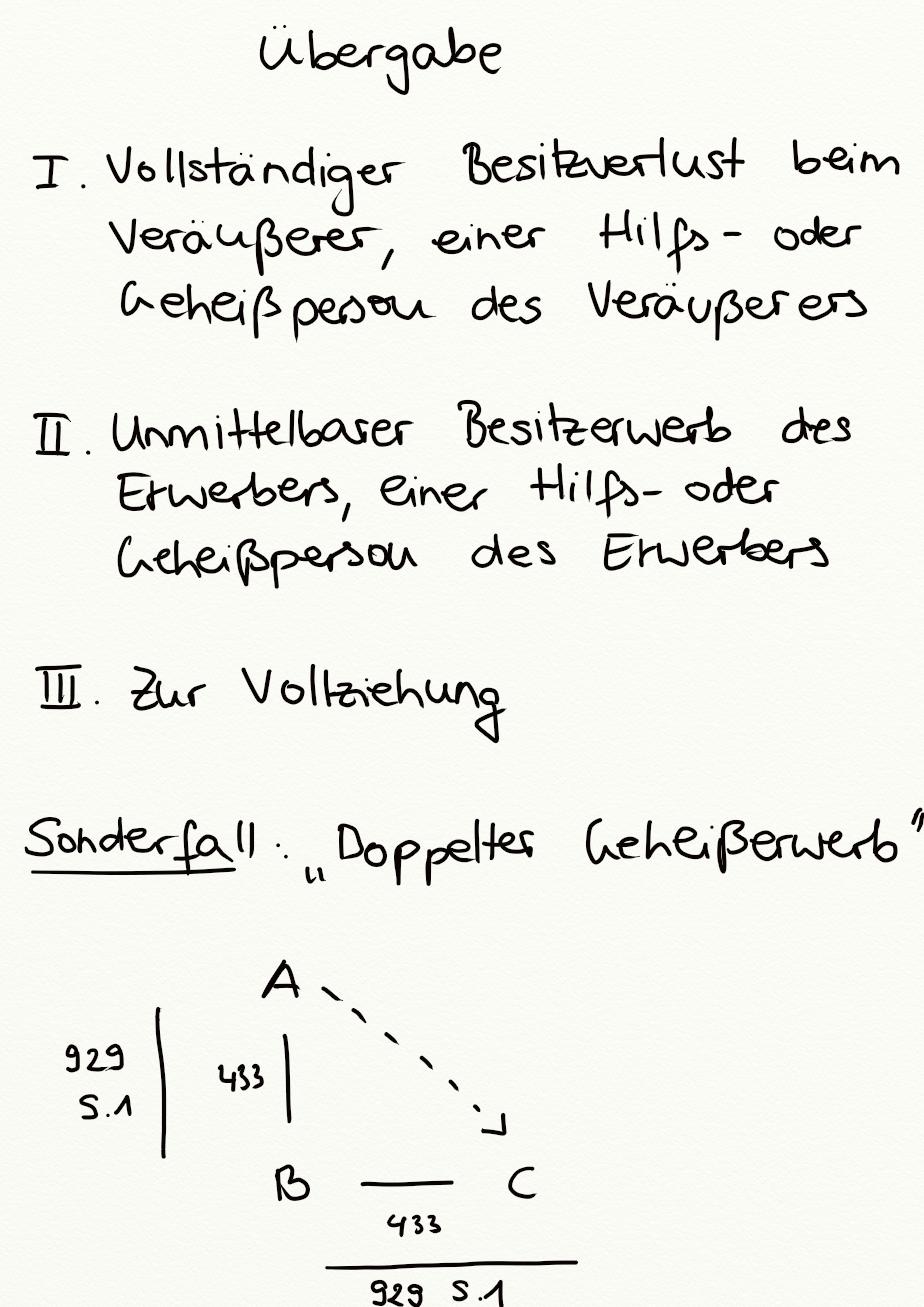 Übergabe
I. Vollständiger Besitzverlust beim
Veräußerer, einer Hilfs- oder
Geheißperson des Veräußerers
II. Unmittelbarer Besitzerwerb des
Erwerbers, einer Hilfs- oder
Geheißperson des Erwerbers
III. Zur Vollziehung
Sonderfall: „Doppelter Geheißerwerb"
A
929
S.1
433
B
C
433
929 S.1